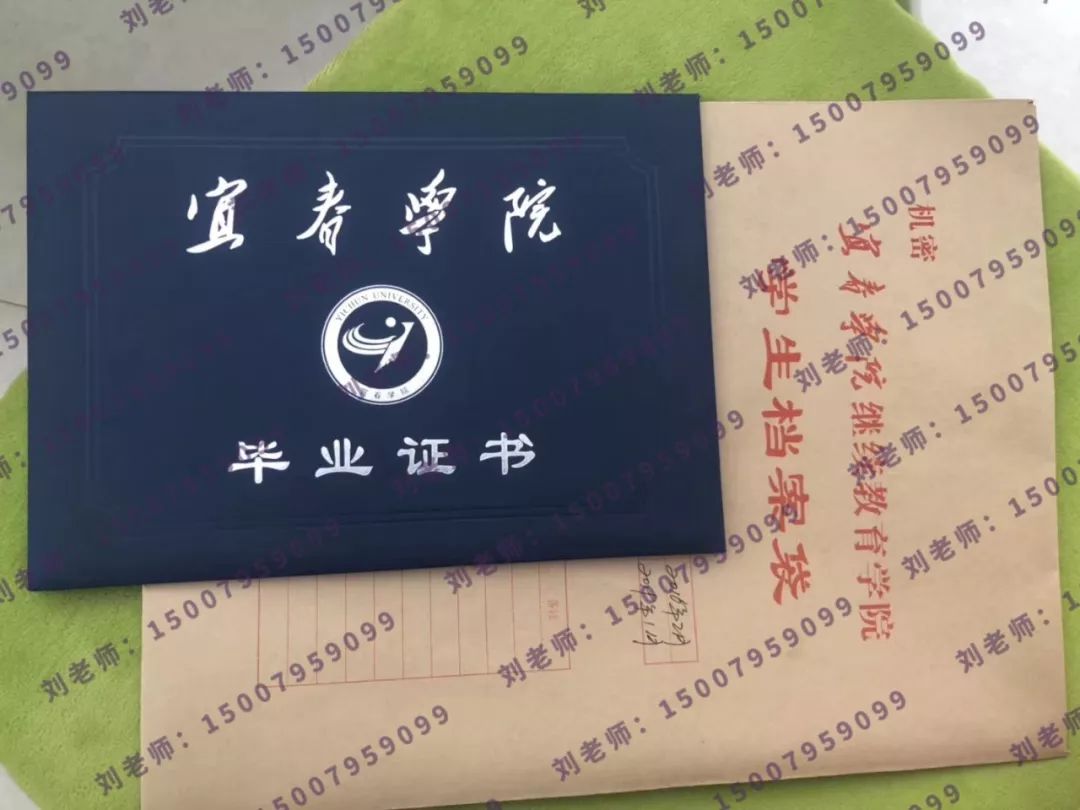 宜春学院
YICHUN UNIVERSITY
毕业证书
机密
宜春学院继续教育学院
学生档案袋
备注
刘老师：15007959099
刘老师：15007959099
刘老师：15007959099
刘老师：15007959099
刘老师：15007959099
刘老师：15007959099
刘老师：15007959099
刘老师：15007959099
刘老师：15007959099
刘老师：15007959099